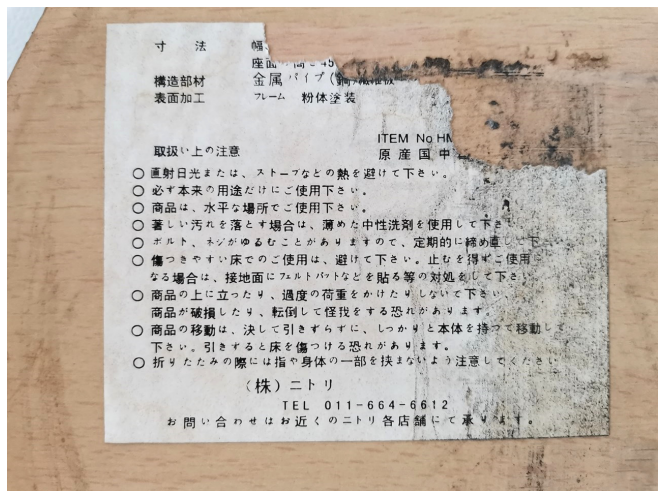 寸 法 幅
座面 高 45
構造部材 金属パイプ(鋼)繊維板
表面加工 フレーム 粉体塗装
ITEM No HM
取扱い上の注意 原産国 中
○直射日光または、ストーブなどの熱を避けて下さい。
○必ず本来の用途だけにご使用下さい。
○商品は、水平な場所でご使用下さい。
○著しい汚れを落とす場合は、薄めた中性洗剤を使用して下さい
○ボルト、ネジがゆるむことがありますので、定期的に締め直して下
○傷つきやすい床でのご使用は、避けて下さい。止むを得ずご使用に
なる場合は、接地面にフェルトパットなどを貼る等の対処をして下さい
○商品の上に立ったり、過度の荷重をかけたりしないで下さい
商品が破損したり、転倒して怪我をする恐れがあります。
○商品の移動は、決して引きずらずに、しっかりと本体を持って移動して
下さい。引きずると床を傷つける恐れがあります。
○折りたたみの際には指や身体の一部を挟まないよう注意してください
(株)ニトリ
TEL 011-664-6612
お問い合わせはお近くのニトリ各店舗にて承ります。